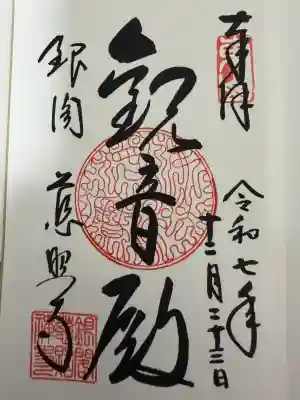 奉拝
令和七年
十二月二十三日
観音殿
銀閣 慈照寺